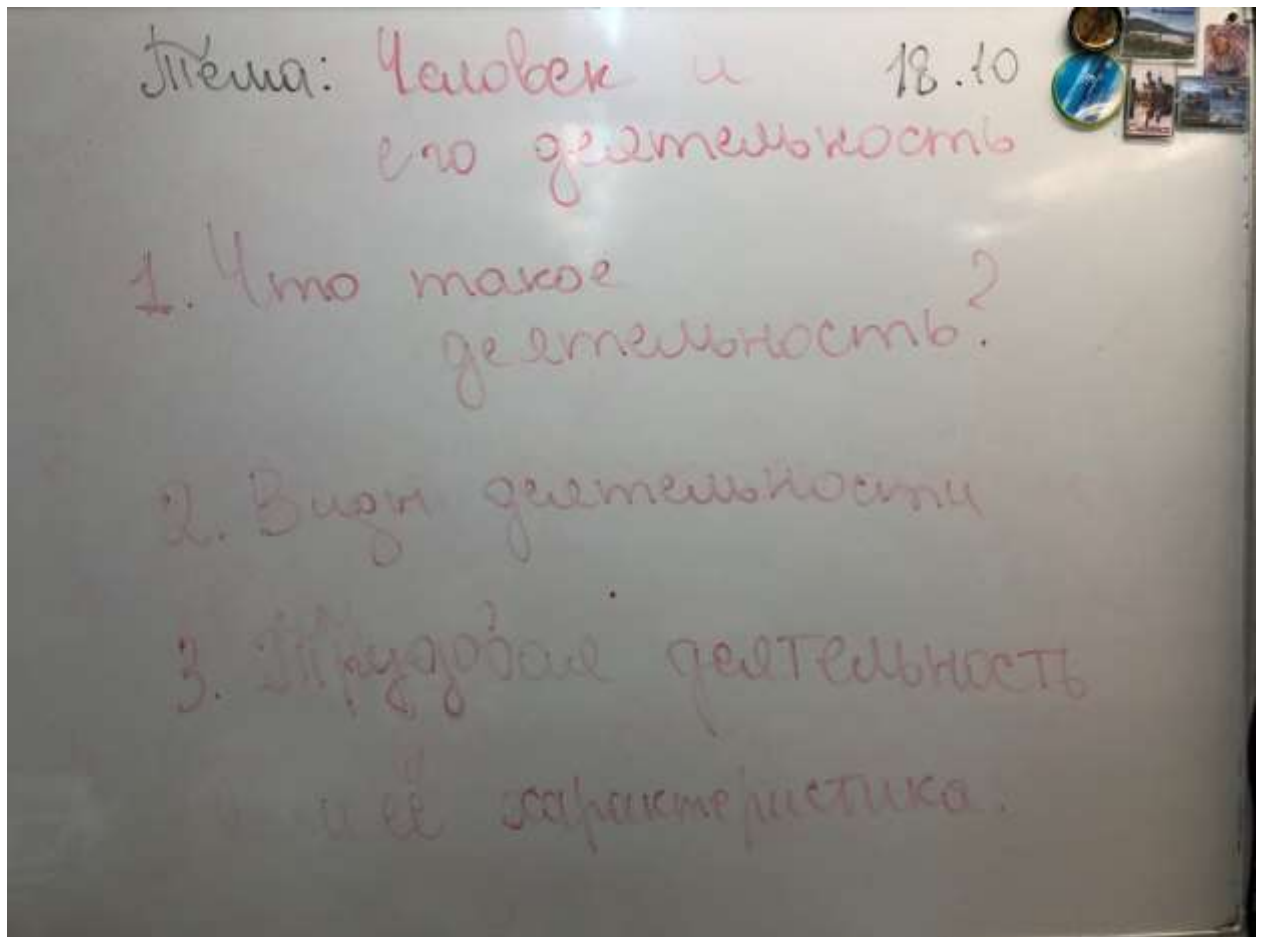 Тема: Человек и 18.10
его деятельность
1. Что такое
деятельность?
2. Виды деятельности
3. Трудовая деятельность
и её характеристика.